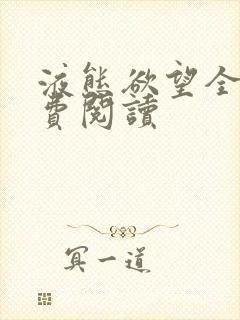 液態欲望全
費閱讀
冥一道